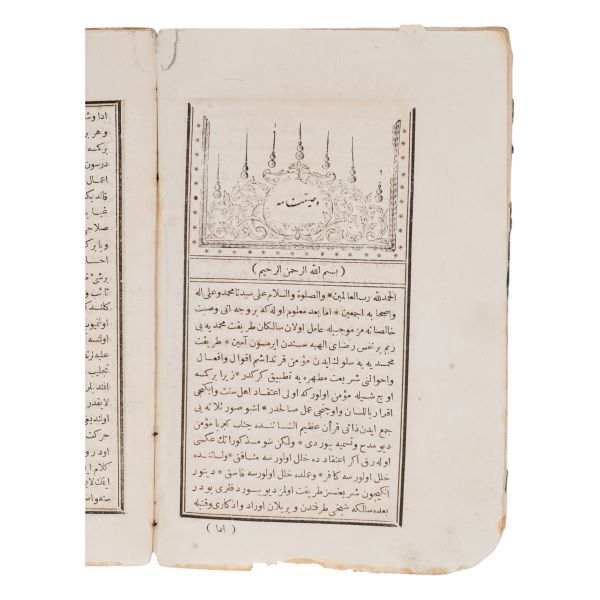 وصيتنامه
( بسم الله الرحمن الرحيم )
الحمد لله رب العالمين * والصلوة والسلام على سيدنا محمد وعلى اله
واصحابه اجمعين * اما بعد معلوم اوله كه بروجه اتى وصيت
خالصانه من موجبيله عامل اولان سالكان طريقت محمديه يى
ربم برنفس رضاى الهيه سندن ايرمسون آمين * طريقت
محمديه يه سلوك ايدن مؤمن قرنداشم اقوال وافعال
واحوالنى شريعت مطهره يه تطبيق كركدر * زيرا بركسه
اوج شيله مؤمن اولور كه اولى اعتقاد اهل سنت وايكنجى
اقرار باللسان واوجنجى عمل صالحدر * اشبو صور ثلاثه يى
جمع ايدن ذاتى قرآن عظيم الشاننده جناب كبريا مؤمن
ديو مدح وتسميه بيوردى * ولكن شو مذكوراتك عكسى
اوله رق اكر اعتقادده خلل اولورسه منافق * ولساننده
خلل اولورسه كافر * وعملده خلل اولورسه فاسق * دينور
انكيچون شريعتسز طريقت اولمز ديو بيوردقلرى بودر
بعده سالكه شيخى طرفندن ويريلان اوراد واذكارى وقتيله
( ادا )
ادا وشـ
وهر بر
بركسه
درسون
صلاحى
وبا بركـ
احسا
اولنسه
تجليب
حركت
اودر و
كلام اي